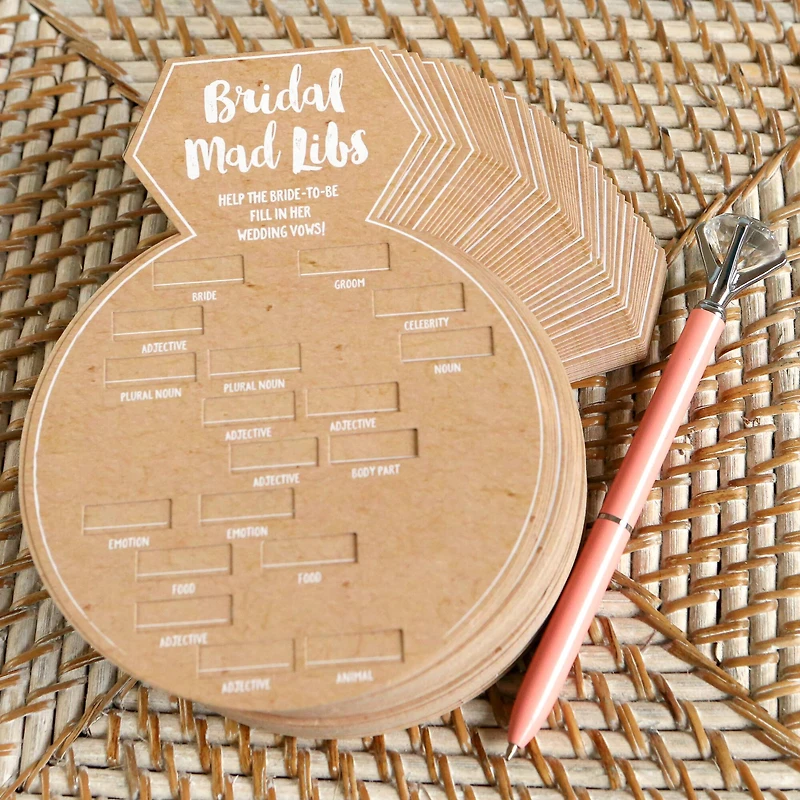 Bridal
Mad Libs
HELP THE BRIDE-TO-BE
FILL IN HER
WEDDING VOWS!
BRIDE GROOM
ADJECTIVE CELEBRITY
PLURAL NOUN PLURAL NOUN NOUN
ADJECTIVE ADJECTIVE
ADJECTIVE BODY PART
EMOTION EMOTION
FOOD FOOD
ADJECTIVE
ADJECTIVE ANIMAL